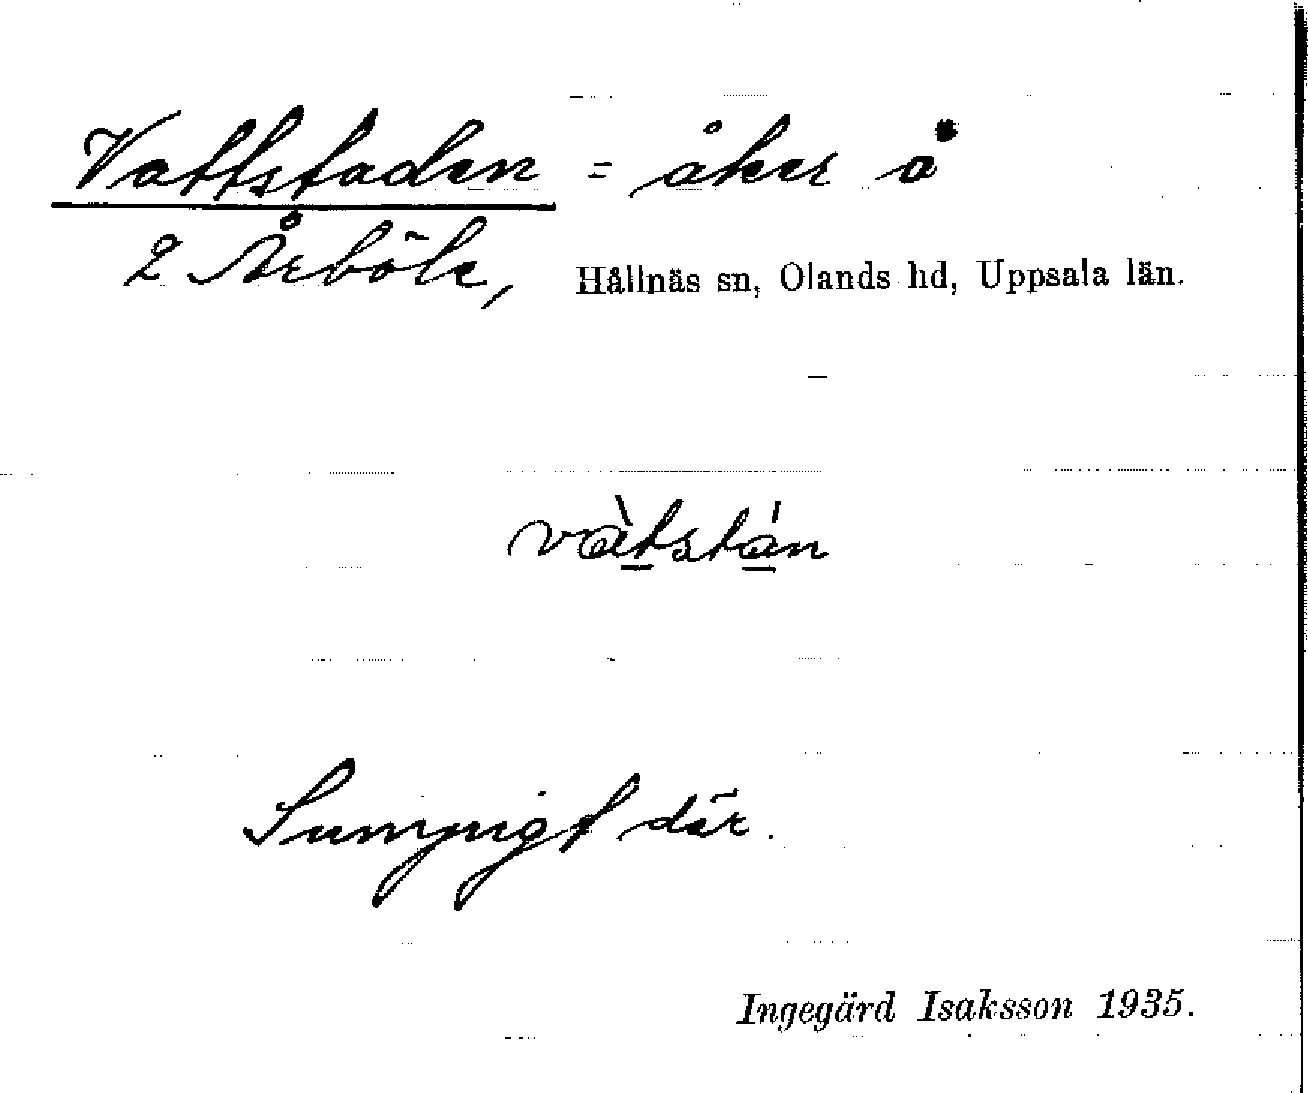 Vattstaden = åker å
2 Årböle, Hållnäs sn, Olands hd, Uppsala län.
vàtstán
Sumpigt där.
Ingegärd Isaksson 1935.